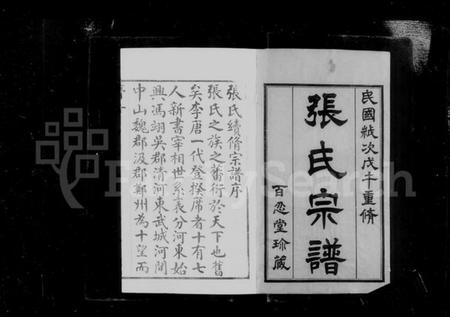 民國紙次戊午重脩
張氏宗譜
百忍堂珍藏
張氏續脩宗譜序
張氏之族之蕃衍於天下也舊
矣李唐一代登揆席者十有七
人新書宰相世系表分河東始
興馮翊吳郡清河東武城河間
中山魏郡汲郡鄭州為十望而